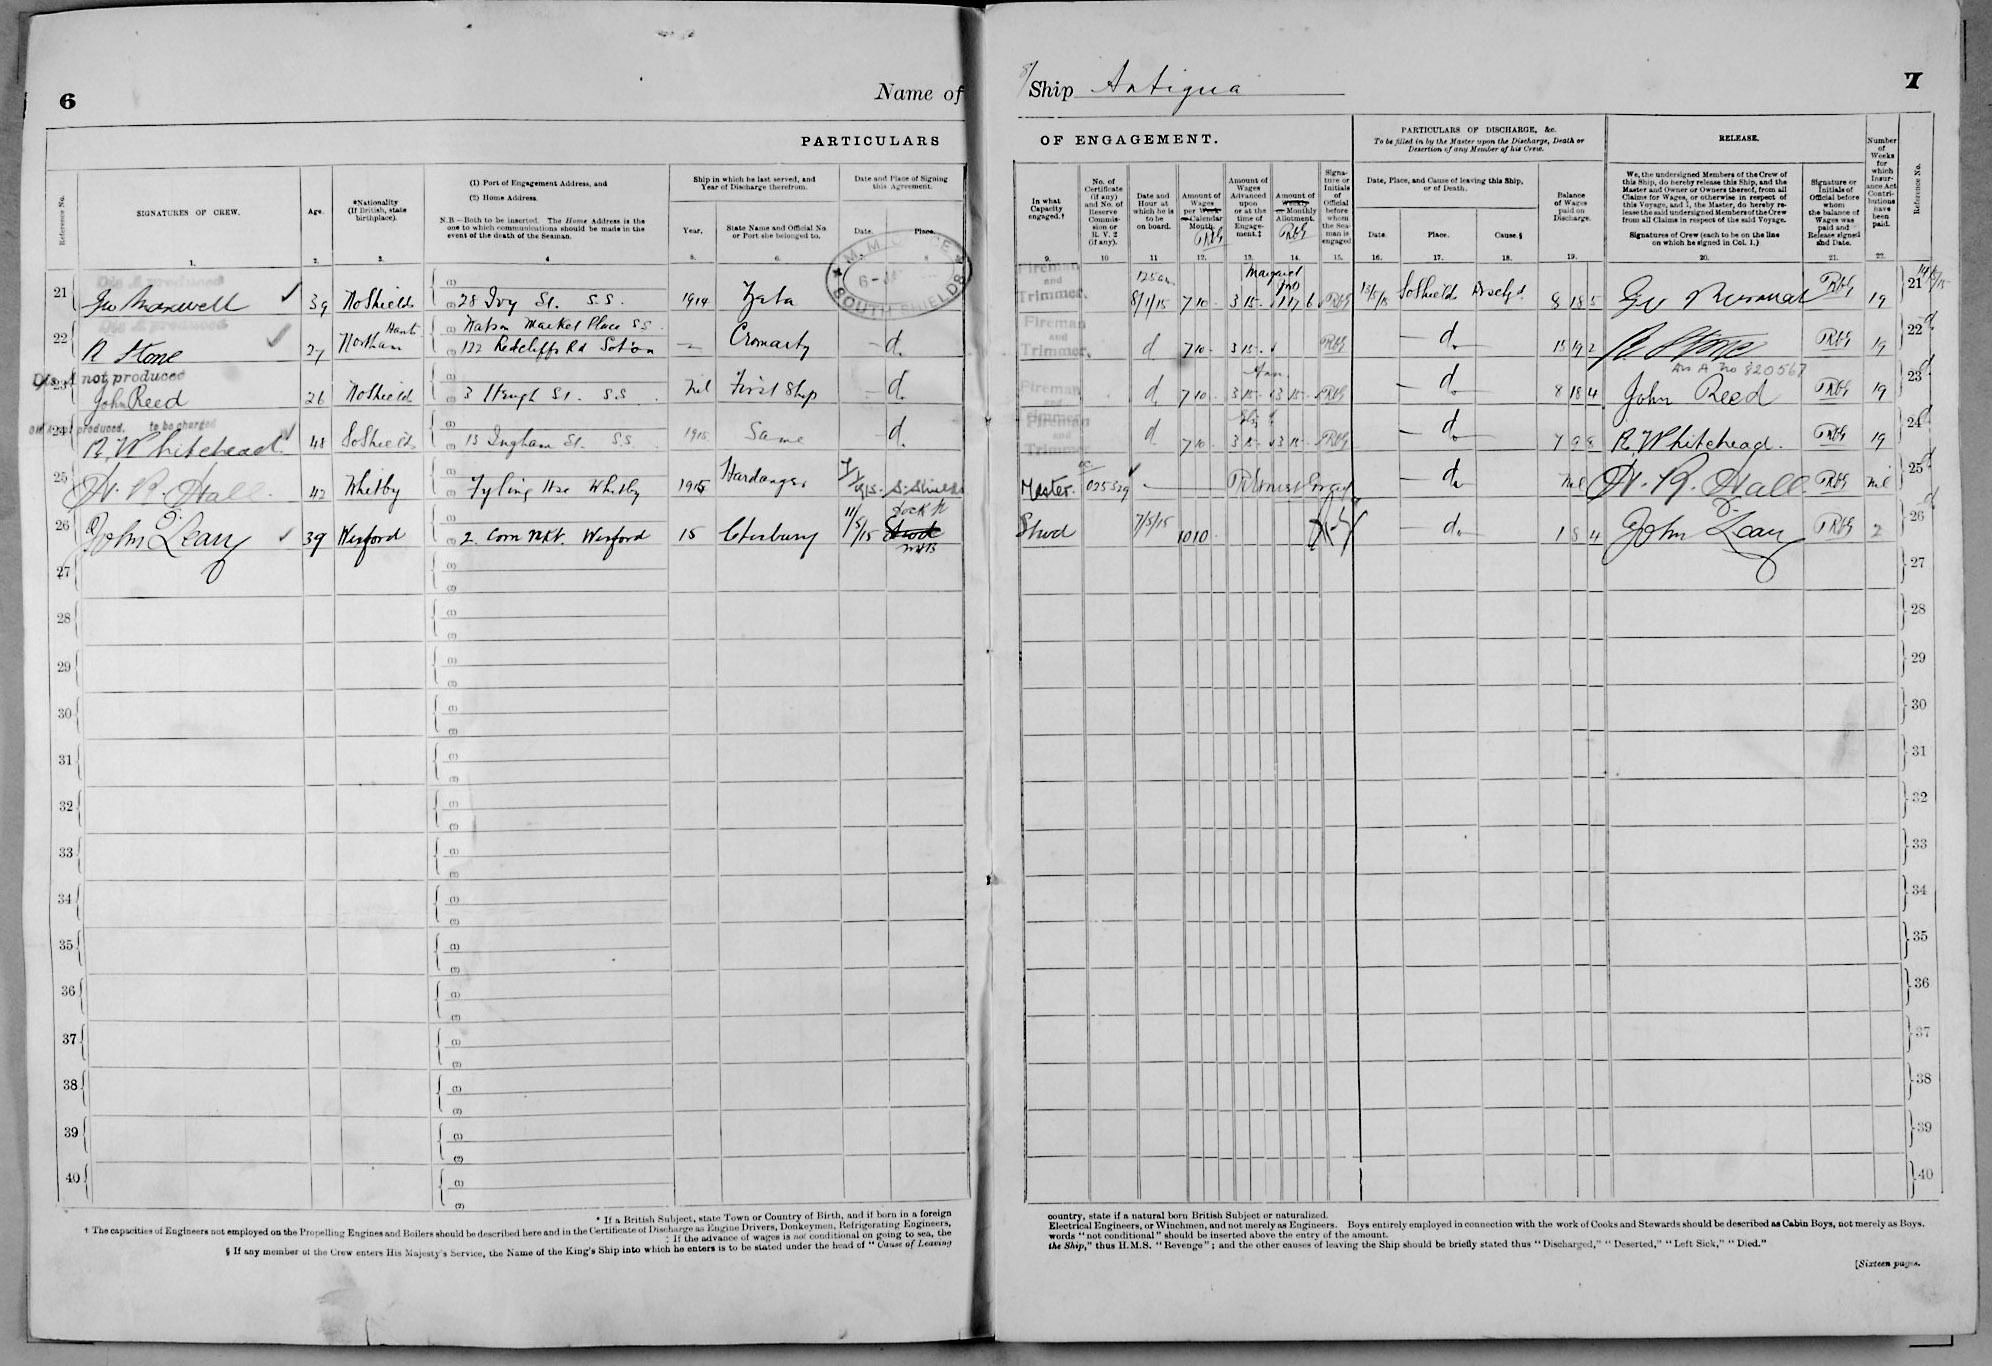 6
Name of
PARTICULARS
Reference No.
SIGNATURES OF CREW.
Age.
*Nationality
(If British, state
birthplace).
(1) Port of Engagement Address, and
(2) Home Address.
N.B.—Both to be inserted. The Home Address is the
one to which communications should be made in the
event of the death of the Seaman.
Ship in which he last served, and
Year of Discharge therefrom.
Year.
State Name and Official No.
or Port she belonged to.
Date and Place of Signing
this Agreement.
Date.
Place.
1. 2. 3. 4 5. 6. 8
M.M. OFFICE
SOUTH SHIELDS
21 Dis A produced
Geo Maxwell 39 No Shields 28 Ivy St. S.S. 1914 Zeta
22 Dis A produced
R Stone 27 Northam Hants Watson Market Place SS
122 Redcliffe Rd Soton — Cromarty d.
23 Dis A not produced
John Reed 26 No Shields 3 Heugh St. S.S. Nil First Ship d.
24 produced. to be charged
R. Whitehead 48 So Shields 15 Ingham St. S.S. 1915 Same d.
25 H. R. Hall. 42 Whitby Fyling Hse Whitby 1915 Hardanger S. Shields
26 John Leary 39 Wexford 2. Corn Mkt. Wexford 15 11/5/15
27
28
29
30
31
32
33
34
35
36
37
38
39
40
* If a British Subject, state Town or Country of Birth, and if born in a foreign
† The capacities of Engineers not employed on the Propelling Engines and Boilers should be described here and in the Certificate of Discharge as Engine Drivers, Donkeymen, Refrigerating Engineers,
‡ If the advance of wages is not conditional on going to sea, the
§ If any member of the Crew enters His Majesty's Service, the Name of the King's Ship into which he enters is to be stated under the head of "Cause of Leaving
S/Ship Antigua
7
OF ENGAGEMENT.
PARTICULARS OF DISCHARGE, &c.
To be filled in by the Master upon the Discharge, Death or
Desertion of any Member of his Crew.
RELEASE.
In what
Capacity
engaged.†
No. of
Certificate
(if any)
and No. of
Reserve
Commis-
sion or
R. V. 2
(if any).
Date and
Hour at
which he is
to be
on board.
Amount of
Wages
per Week
or Calendar
Month.
Amount of
Wages
Advanced
upon
or at the
time of
Engage-
ment.‡
Amount of
Weekly
or Monthly
Allotment.
Signa-
ture or
Initials
of
Official
before
whom
the Sea-
man is
engaged
Date, Place, and Cause of leaving this Ship,
or of Death.
Date.
Place.
Cause.§
Balance
of Wages
paid on
Discharge.
We, the undersigned Members of the Crew of
this Ship, do hereby release this Ship, and the
Master and Owner or Owners thereof, from all
Claims for Wages, or otherwise in respect of
this Voyage, and I, the Master, do hereby re-
lease the said undersigned Members of the Crew
from all Claims in respect of the said Voyage.
Signatures of Crew (each to be on the line
on which he signed in Col. 1.)
Signature or
Initials of
Official before
whom
the balance of
Wages was
paid and
Release signed
and Date.
Number
of
Weeks
for
which
Insur-
ance Act
Contri-
butions
have
been
paid.
Reference No.
9. 10 11 12. 13. 14. 15. 16. 17. 18. 19. 20. 21. 22.
Fireman and Trimmer. 8/1/15 7 10 - 3 15 - Margaret 15/5/15 So Shields Dischgd. 8 18 5 19 21
Fireman and Trimmer. d 7 10 - 3 15 - d. 15 19 2 R Stone 19 22
Dis A No 820567
Fireman and Trimmer. d 7 10 - 3 15 - 3 15 - d. 8 18 4 John Reed 19 23
Fireman and Trimmer. d 7 10 - 3 15 - 3 15 - d. R. Whitehead. 19 24
Master. 025529 — d. Nil H. R. Hall. Nil 25
Stwd 7/5/15 10 10 - d. 1 8 4 John Leary 2 26
27
28
29
30
31
32
33
34
35
36
37
38
39
40
country, state if a natural born British Subject or naturalized.
Electrical Engineers, or Winchmen, and not merely as Engineers. Boys entirely employed in connection with the work of Cooks and Stewards should be described as Cabin Boys, not merely as Boys.
words "not conditional" should be inserted above the entry of the amount.
the Ship," thus H.M.S. "Revenge"; and the other causes of leaving the Ship should be briefly stated thus "Discharged," "Deserted," "Left Sick," "Died."
[Sixteen pages.